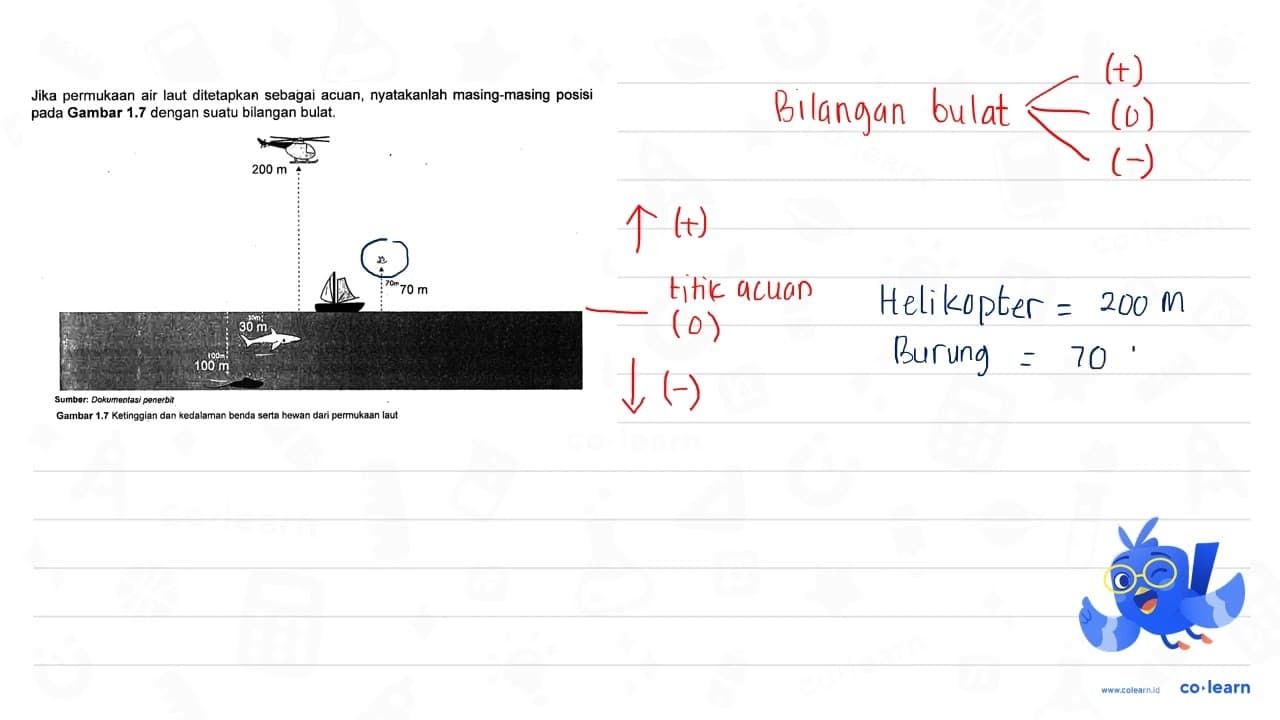 Jika permukaan air laut ditetapkan sebagai acuan, nyatakanlah masing-masing posisi
pada Gambar 1.7 dengan suatu bilangan bulat.
200 m
70m
70 m
30m
30 m
100m
100 m
Sumber: Dokumentasi penerbit
Gambar 1.7 Ketinggian dan kedalaman benda serta hewan dari permukaan laut
Bilangan bulat
(+)
(0)
(-)
(+)
titik acuan
(0)
(-)
Helikopter = 200 m
Burung = 70
www.colearn.id
co·learn